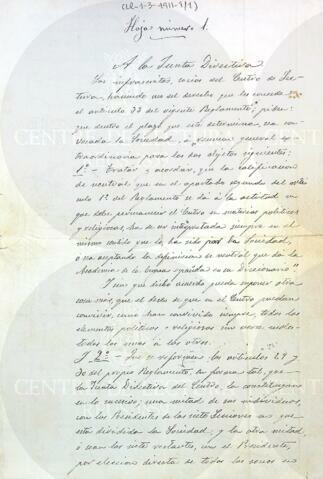 (LE-1-3-1911-1/1)
Hoja número 1.
A la Junta Directiva
Los infrascritos, socios del Centro de Lec-
tura, haciendo uso del derecho que les concede
el artículo 33 del vigente Reglamento, piden:
que dentro el plazo que este determina, sea con-
vocada la Sociedad, a reunión general ex-
traordinaria para los dos objetos siguientes:
1º - Tratar y acordar, que la calificación
de neutral, que en el apartado segundo del artí-
culo 1º del Reglamento se dá á la actitud en
que debe permanecer el Centro en materias políticas
y religiosas, ha de ser interpretada siempre en el
mismo sentido que lo ha sido por la Sociedad,
ó sea aceptando la definición de neutral que da la
Academia de la lengua española en su Diccionario
sin que dicho acuerdo pueda suponer otra
cosa más que el deseo de que en el Centro puedan
convivir, como han convivido siempre, todos los
elementos políticos y religiosos sin
todos los unos á los otros.
2º - Que se reformen los artículos 29 y
30 del propio Reglamento, en forma tal, que
la Junta Directiva del Centro, la constituyan
en lo sucesivo; una mitad de sus individuos,
con los Presidentes de las siete Secciones en que
está dividida la Sociedad; y la otra mitad,
ó sean los siete restantes, con el Presidente,
por elección directa de todos los socios en